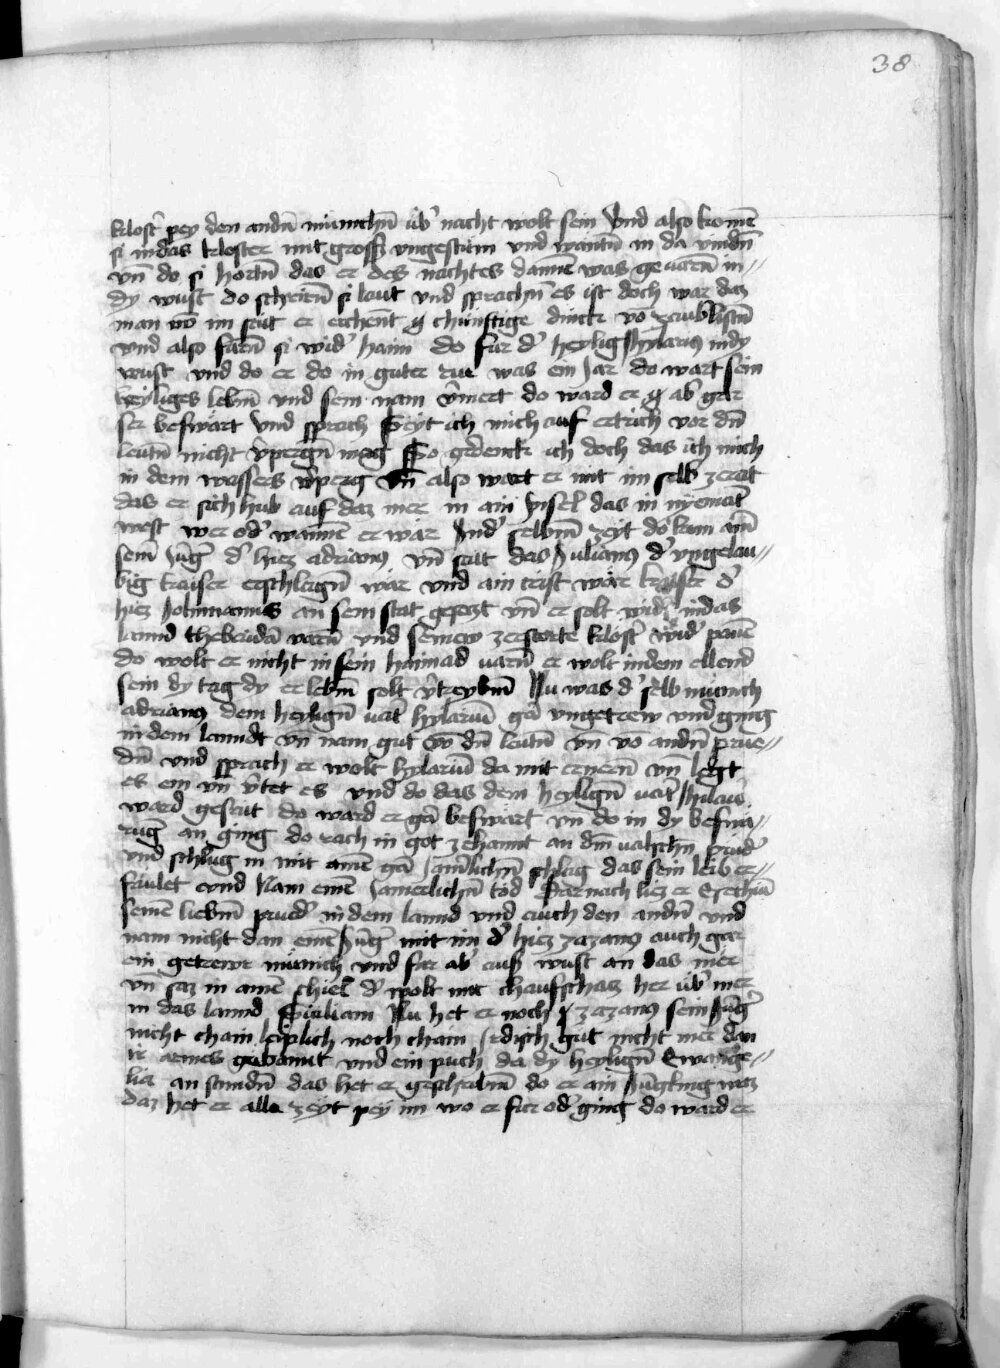 38
klost̉ pey den andn̄ münichn̄ üb̉ nacht wolt sein Vnd also komē
si in das kloster mit grosß vngestüm vnd wantn̄ in da vindn̄
vn̄ do si hortn̄ das er des nachtes dannē was geuarn̄ in //
dy wust do schrirn̄ si laut vnd sprachn̄ es ist doch war daz
man vō im seit er erchent chünftige dinck vō
vnd also furn̄ si wid̉ haim do fur d̉ heylig Hylarius in dy
wust vnd do er do in guter rue was ein Jar do wart sein
heyliges lebn̄ vnd sein nam v̉mert do ward er ab̉ gar
ser beswart Vnd sprach Seyt ich mich auf ertrich vor dn̄
leutn̄ nicht v̉pergn̄ mag So gedenck ich doch das ich mich
in dem wassers v̉perg vn̄ also wart er mit im selb zerat
das er sich hub auf daz mer in ain ynsel das in nyemāt
west wer od̉ wannē er wär In d̉ selbm̄ zeyt do kam ain̄
sein̄ Jüng̉ d̉ hiez adrianus vn̄ seit das Julianus d̉ vngelau //
big kaiser erschlagn̄ wär vnd ain crist wär kaiser d̉
hiez Jobinianus an sein stat gesetzt vn̄ er solt wid̉ in das
lannd thebaidā varn̄ vnd seinew zerstorte klost̉ wid̉ pawē
do wolt er nicht in sein haimad uarn̄ er wolt in dem ellend
sein dy tag dy er lebm̄ solt v̉treybm̄ Nu was d̉ selb münich
adrianus dem heylign̄ uat̉ hylariū gā vngetrew vnd ging
in dem lanndt vn̄ nam gut vō dn̄ leutn̄ vn̄ vō andn̄ prüe //
dn̄ vnd sprach er wolt hylariū da mit ernern̄ vn̄ legt
es ein vn̄ v̉tet es vnd do das dem heylign̄ uat̉ Hilariū
ward geseit do ward er gā beswärt vn̄ do in dy beswä //
rūg an ging do rach in got zehannt an dm̄ ualschn̄ prud̉
vnd schlug in mit ainē gā Jamerlichn̄ schlag das sein leib er //
faulet vnd Nam einē Jamerlichn̄ tod Darnach liez er Esechiā
seinē liebm̄ prued̉ in dem lannd vnd auch den andn̄ vnd
nam nicht dan einē Jüng̉ mit im d̉ hiez zazanus auch gar
ein getrewr münich vnd fur ab̉ auß wüst an das mer
vn̄ saz in ainē schief d̉ wolt mit chaufschaz her üb̉ mer
in das lannd Siciliam Nu het er noch zazanus sein Jüng̉
nicht chain leiplich noch chain Jrdisch gut nicht mer dan
ir aermes gwannt vnd ein puch da dy heylign̄ Ewange //
lia an stundn̄ das het er geschribm̄ do er ain Jüngling waz
daz het er alle zeyt pey im wo er fur od̉ ging do ward er